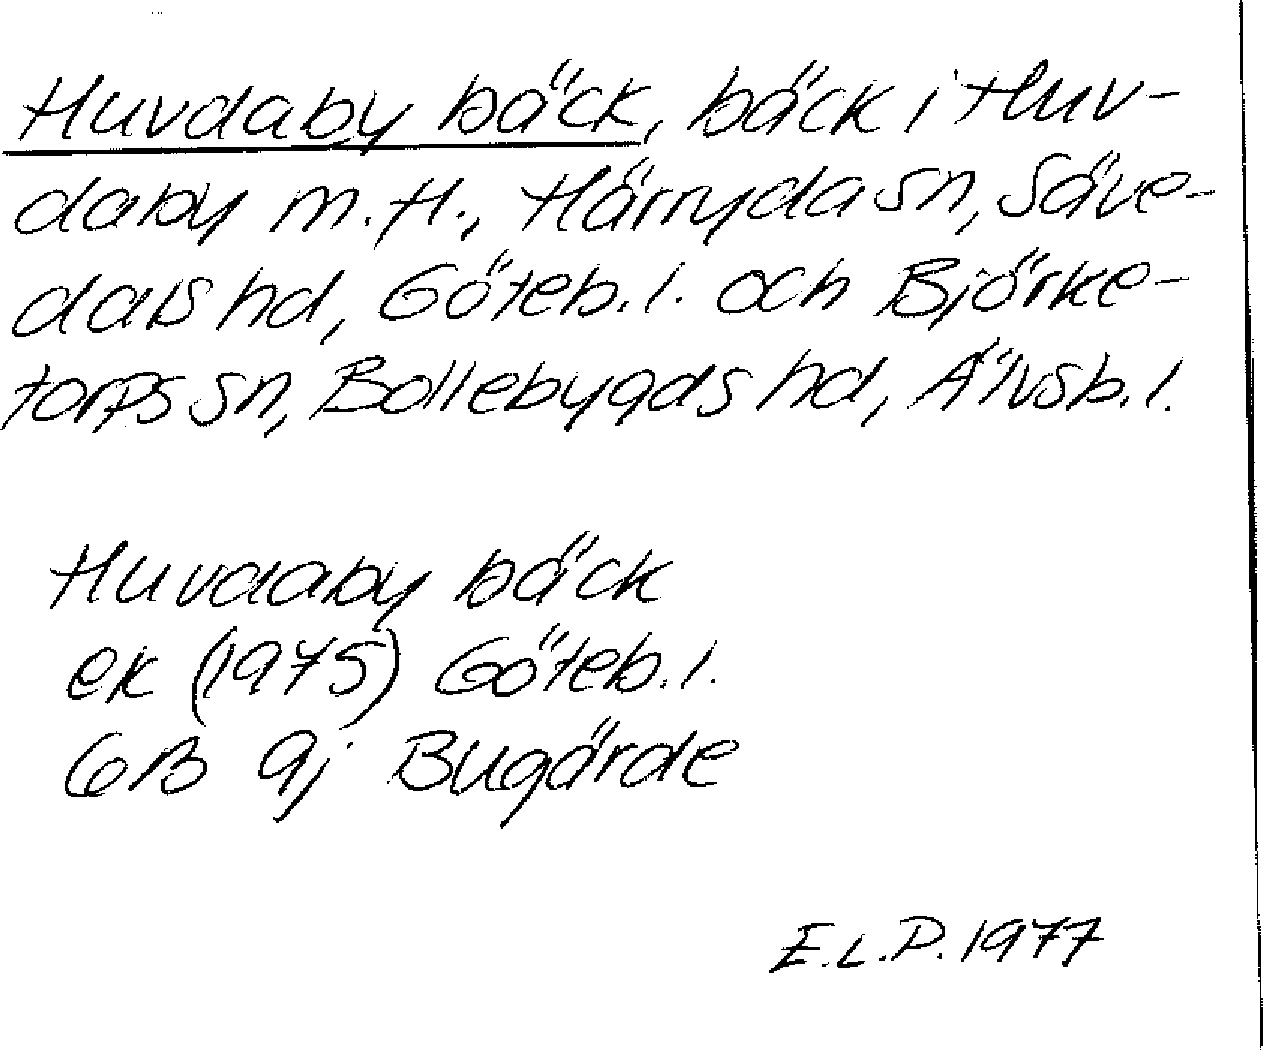 Huvdaby bäck, bäck i Huv-
daby m.H., Härryda sn, Säve-
dals hd, Göteb.l. och Björke-
torps sn, Bollebygds hd, Älvsb.l.
Huvdaby bäck
ek (1975) Göteb.l.
6B 9j Bugärde
E.L.P. 1977